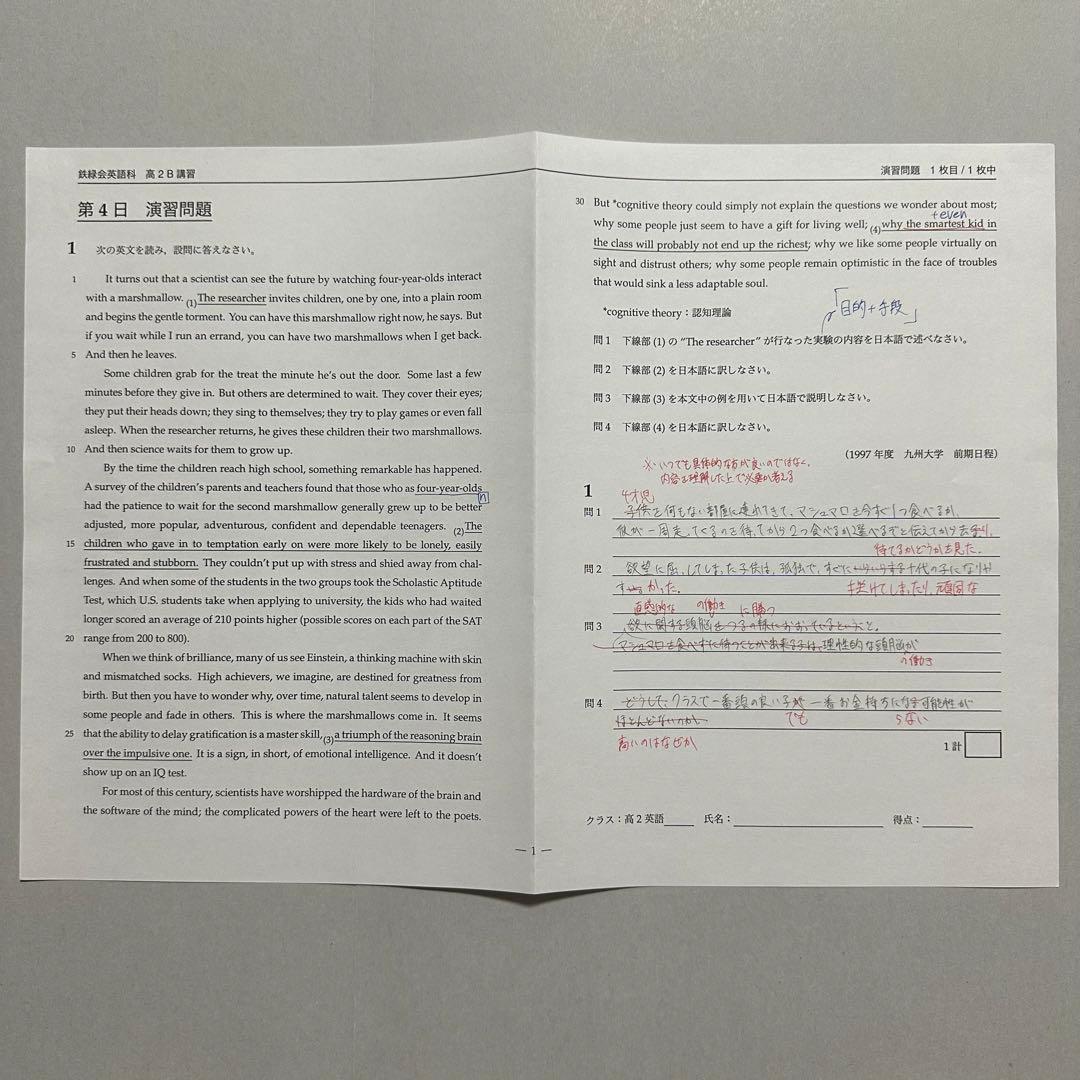 鉄緑会英語科　高２Ｂ講習
第４日　演習問題
1　次の英文を読み，設問に答えなさい。
1　It turns out that a scientist can see the future by watching four-year-olds interact
with a marshmallow. (1)The researcher invites children, one by one, into a plain room
and begins the gentle torment. You can have this marshmallow right now, he says. But
if you wait while I run an errand, you can have two marshmallows when I get back.
5　And then he leaves.
Some children grab for the treat the minute he's out the door. Some last a few
minutes before they give in. But others are determined to wait. They cover their eyes;
they put their heads down; they sing to themselves; they try to play games or even fall
asleep. When the researcher returns, he gives these children their two marshmallows.
10　And then science waits for them to grow up.
By the time the children reach high school, something remarkable has happened.
A survey of the children's parents and teachers found that those who as four-year-olds
n
had the patience to wait for the second marshmallow generally grew up to be better
adjusted, more popular, adventurous, confident and dependable teenagers. (2)The
15　children who gave in to temptation early on were more likely to be lonely, easily
frustrated and stubborn. They couldn't put up with stress and shied away from chal-
lenges. And when some of the students in the two groups took the Scholastic Aptitude
Test, which U.S. students take when applying to university, the kids who had waited
longer scored an average of 210 points higher (possible scores on each part of the SAT
20　range from 200 to 800).
When we think of brilliance, many of us see Einstein, a thinking machine with skin
and mismatched socks. High achievers, we imagine, are destined for greatness from
birth. But then you have to wonder why, over time, natural talent seems to develop in
some people and fade in others. This is where the marshmallows come in. It seems
25　that the ability to delay gratification is a master skill, (3)a triumph of the reasoning brain
over the impulsive one. It is a sign, in short, of emotional intelligence. And it doesn't
show up on an IQ test.
For most of this century, scientists have worshipped the hardware of the brain and
the software of the mind; the complicated powers of the heart were left to the poets.
演習問題　１枚目/１枚中
30　But *cognitive theory could simply not explain the questions we wonder about most;
+even
why some people just seem to have a gift for living well; (4)why the smartest kid in
the class will probably not end up the richest; why we like some people virtually on
sight and distrust others; why some people remain optimistic in the face of troubles
that would sink a less adaptable soul.
*cognitive theory：認知理論
「目的＋手段」
問１　下線部 (1) の “The researcher” が行なった実験の内容を日本語で述べなさい。
問２　下線部 (2) を日本語に訳しなさい。
問３　下線部 (3) を本文中の例を用いて日本語で説明しなさい。
問４　下線部 (4) を日本語に訳しなさい。
（1997 年度　九州大学　前期日程）
※いつでも具体的な方が良いのではなく、
内容を理解した上で必要か考える
1
4才児
問１　子供を何もない部屋に連れてきて、マシュマロを今すぐ1つ食べるか、
待ってから2つ食べるか選べるぞと伝えてから去り、
待てるかどうかを見た。
問２　欲望に屈してしまった子供は、孤独で、すぐに 十代の子になりや
すかった。　挫けてしまったり、頑固な
直感的な　の働き　に勝つ
問３　欲に関する頭脳
マシュマロを食べずに待つことが出来る子は、理性的な頭脳が
の働き
問４　どうして、クラスで一番頭の良い子が 一番お金持ちになる可能性が
ほとんどないのか　でも　らない
高いのはなぜか
1 計
クラス：高２英語　氏名：　得点：
— 1 —